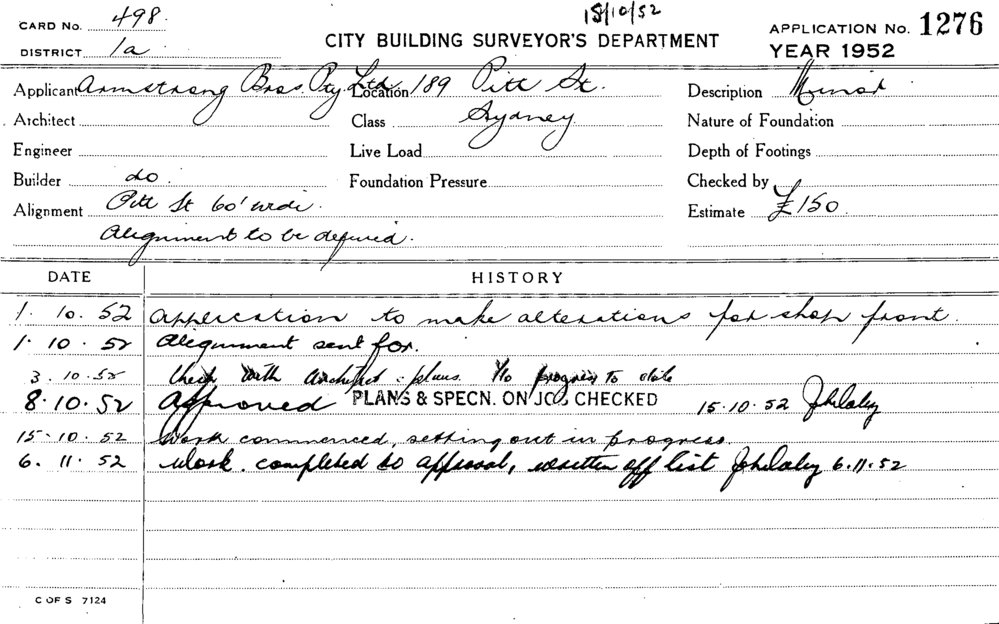 15/10/52
CARD No. 498.
CITY BUILDING SURVEYOR'S DEPARTMENT
APPLICATION No. 1276
DISTRICT 1a
YEAR 1952
Applicant Armstrong Bros. Pty Ltd. Location 189 Pitt St. Description Minor
Architect Class Sydney Nature of Foundation
Engineer Live Load Depth of Footings
Builder do. Foundation Pressure Checked by
Alignment Pitt St 60' wide. Estimate £150
Alignment to be defined.
DATE HISTORY
1. 10. 52 Application to make alterations for shop front.
1. 10. 52 Alignment sent for.
3. 10. 52 Check with architect : plans. No progress to date
8. 10. 52 Approved PLANS & SPECN. ON JOB CHECKED 15.10.52 JhDaley
15. 10. 52 Work commenced, setting out in progress.
6. 11. 52 Work completed to approval, written off list JhDaley 6.11.52
C OF S 7124